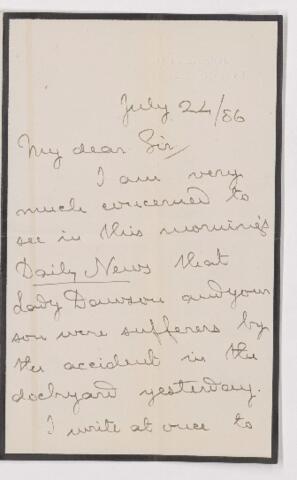 July 24/86
My dear Sir,
I am very
much concerned to
see in this morning's
Daily News that
Lady Dawson and your
son were sufferers by
the accident in the
dockyard yesterday.
I write at once to